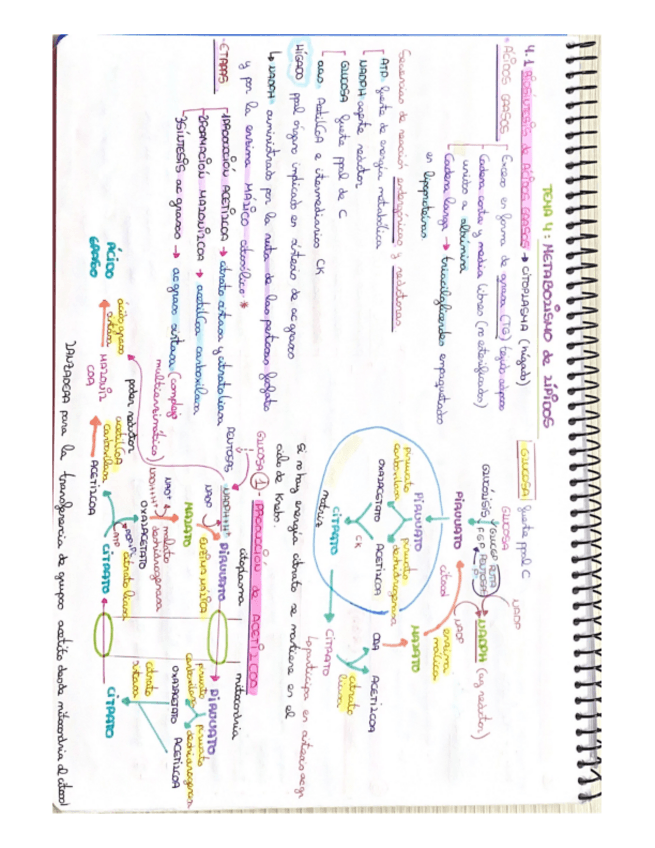 TEMA 4: METABOLISMO de LÍPIDOS
4.1 BIOSÍNTESIS de ÁCIDOS GRASOS → CITOPLASMA (hígado)
*ÁCIDOS GRASOS
Exceso en forma de grasa (TG) tejido adiposo
Cadena corta y media libres (no esterificados)
unidos a albúmina
Cadena larga → triacilglicéridos empaquetado
en lipoproteínas
Secuencias de reacción endergónicas y reductoras
ATP fuente de energía metabólica
NADPH agente reductor
GLUCOSA fuente ppal de C
GLUCOSA fuente ppal de C
otros AcetilCoA e intermediarios CK
HÍGADO ppal órgano implicado en síntesis de ac graso
↳ NADPH suministrado por la ruta de las pentosas fosfato
y por la enzima MÁLICO citosólico *
·ETAPAS
1PRODUCCIÓN ACETILCOA → citrato sintasa y citrato liasa
2FORMACIÓN MALONILCOA → acetilCoA carboxilasa
3SÍNTESIS ac grasos → ac graso sintasa (complejo
multienzimático)
GLUCOSA fuente ppal C
GLUCOSA
NADP
GLUCÓLISIS
NADPH (ag reductor)
PIRUVATO
citosol
NADP
enzima
málica
PIRUVATO
MALATO
piruvato
carboxilasa
piruvato
deshidrogenasa
OXALACETATO
ACETILCOA
CK
CITRATO
matriz
CITRATO
COA
ACETILCOA
citrato
liasa
↳ participa en síntesis ac gr
Si no hay energía citrato se mantiene en el
ciclo de Krebs.
GLUCOSA
1- PRODUCCIÓN de ACETILCOA
PENTOSAS
citoplasma
mitocondria
NADPH+H+
PIRUVATO
PIRUVATO
NADP
ENZIMA MÁLICA
piruvato
carboxilasa
piruvato
deshidrogenasa
MALATO
OXALACETATO
ACETILCOA
poder reductor
NAD+
malato
deshidrogenasa
NADH+H+
OXALACETATO
citrato
sintasa
citrato liasa
ATP
ÁCIDO
GRASO
ácido graso
sintasa
MALONIL
COA
acetilCoA
carboxilasa
ACETILCOA
CITRATO
CITRATO
LANZADERA para la transferencia de grupos acetilo desde mitocondria al citosol